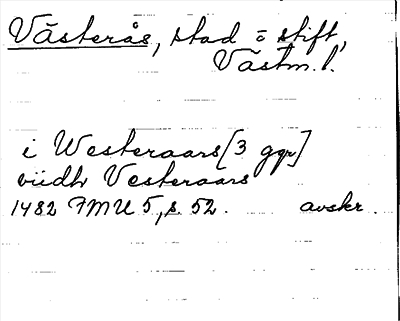 Västerås, stad o stift,
Västm. l.
i Westeraars [3 ggr]
viidh Vesteraars
1482 FMU 5, s. 52. avskr.